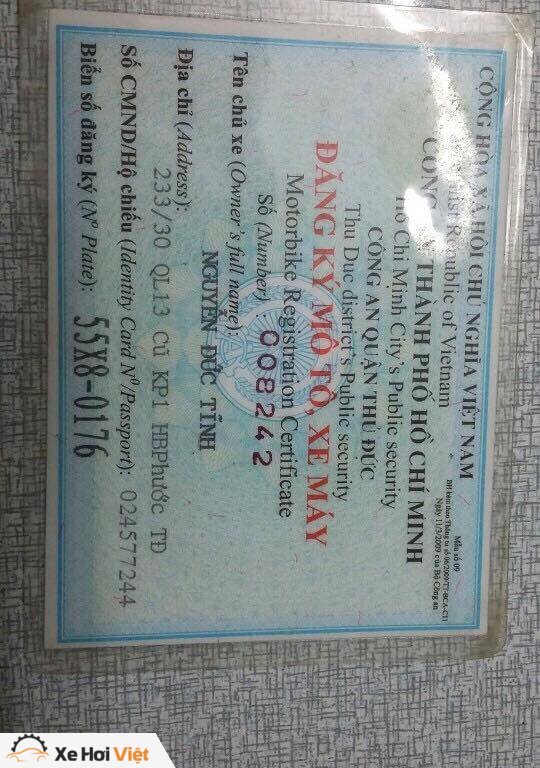 CỘNG HÒA XÃ HỘI CHỦ NGHĨA VIỆT NAM
Republic of Vietnam
Mẫu số 09
BH kèm theo Thông tư số 06/2009/TT-BCA-C11
Ngày 11/3/2009 của Bộ Công an
CÔNG THÀNH PHỐ HỒ CHÍ MINH
Ho Chi Minh City's Public security
CÔNG AN QUẬN THỦ ĐỨC
Thu Duc district's Public security
ĐĂNG KÝ MÔ TÔ, XE MÁY
Motorbike Registration Certificate
Số (Number): 008242
Tên chủ xe (Owner's full name):
NGUYỄN ĐỨC TĨNH
Địa chỉ (Address):
233/30 QL13 CŨ KP1 HBPhước TĐ
Số CMND/Hộ chiếu (Identity Card Nº/Passport): 024577244
Biển số đăng ký (Nº Plate): 55X8-0176
Xe Hơi Việt